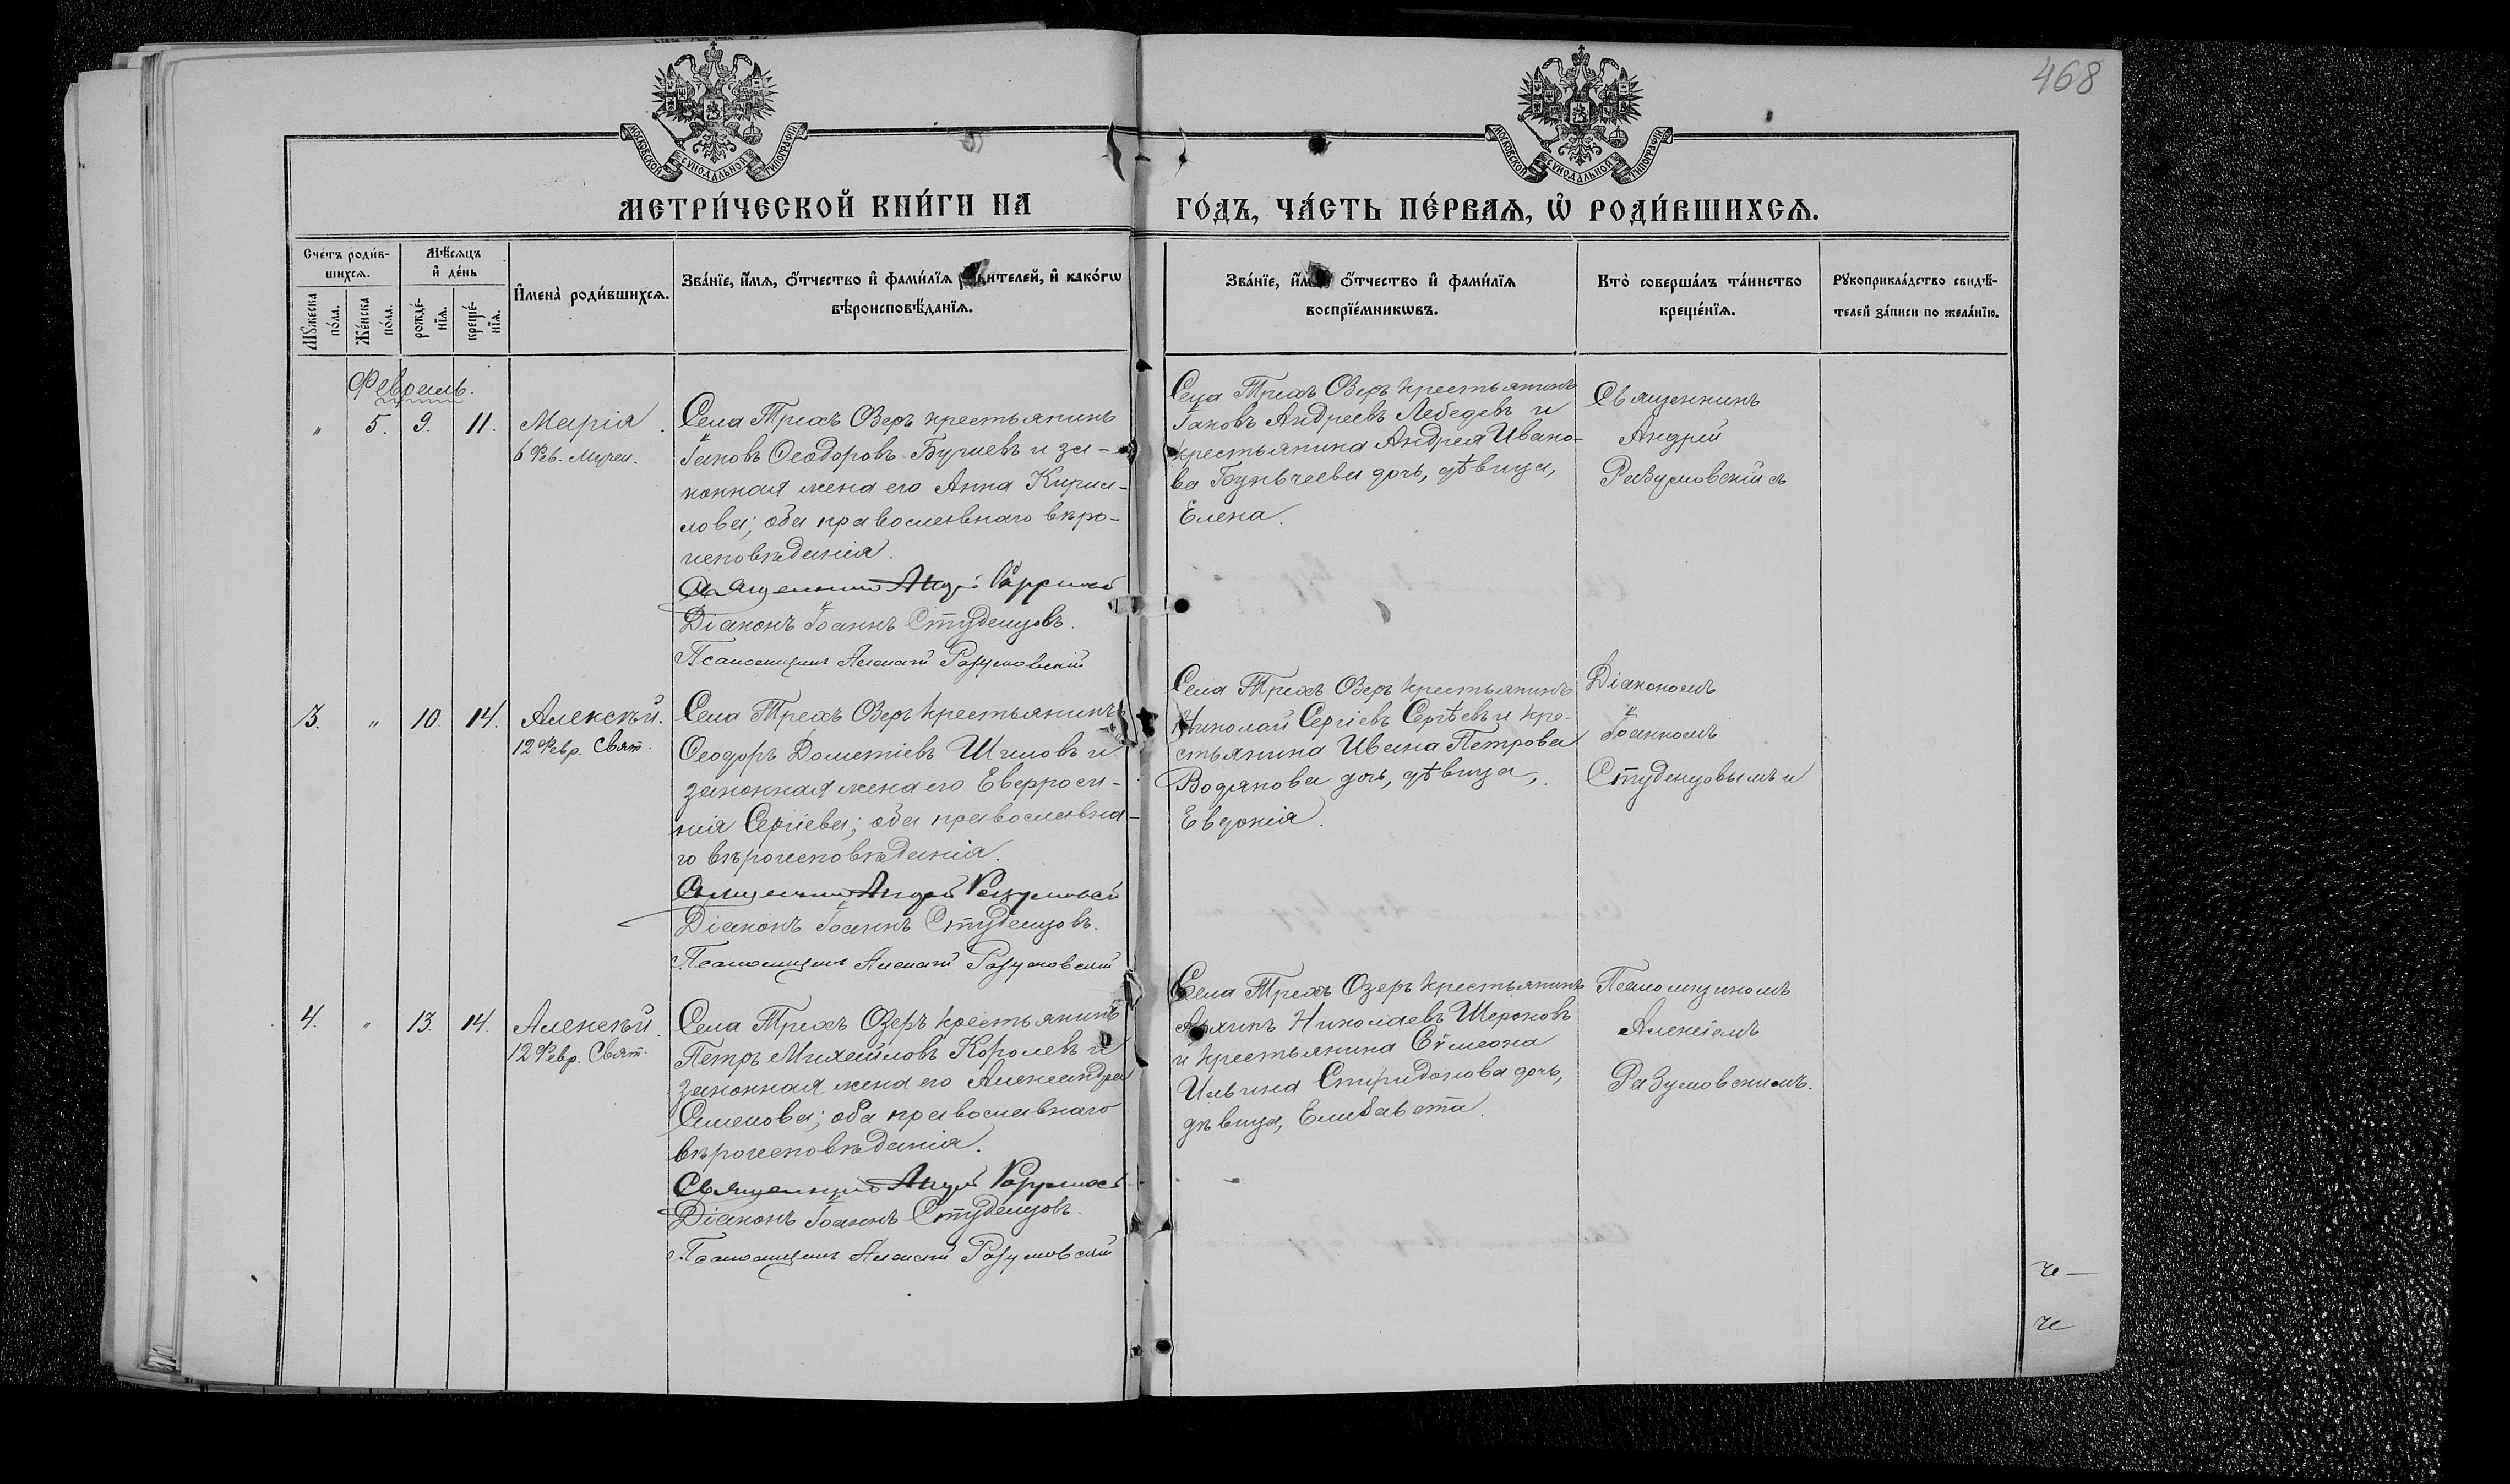 468
МОСКОВСКОЙ СѴНОДАЛЬНОЙ ТИПОГРАФІИ
МОСКОВСКОЙ СѴНОДАЛЬНОЙ ТИПОГРАФІИ
МЕТРИ́ЧЕСКОЙ КНИ́ГИ НА
ГО́ДЪ, ЧА́СТЬ ПЕ́РВАѦ, Ѡ РОДИ́ВШИХСѦ.
Сче́тъ роди́в-
шихсѧ.
Мꙋжеска по́ла.
Же́нска по́ла.
Мѣ́сѧцъ
и҆ де́нь
рожде́-
нїѧ.
креще́-
нїѧ.
И҆мена̀ роди́вшихсѧ.
Зва́нїе, и҆́мѧ, ѻ҆́тчество и҆ фами́лїѧ родителей, и҆ како́гѡ
вѣроисповѣ́данїѧ.
Зва́нїе, и҆́мѧ, ѻ҆́тчество и҆ фами́лїѧ
воспрїе́мникѡвъ.
Кто̀ соверша́лъ та́инство
креще́нїѧ.
Рꙋкоприкла́дство свидѣ́-
телей за́писи по жела́нїю.
Февраль.
" 5. 9. 11.
Марія.
6 Фев. Мучен.
Села Трехъ Озеръ крестьянинъ
Іаковъ Ѳеодоровъ и за-
конная жена его Анна Кирил-
лова; оба православнаго веро-
исповѣданія.
Священникъ Андрей
Діаконъ Іоаннъ Студенцовъ.
Псаломщикъ Алексій Разумовскій
Села Трехъ Озеръ крестьянинъ
Іаковъ Андреевъ Лебедевъ и
крестьянина Андрея Ивано-
ва дочь, дѣвица,
Елена.
Священникъ
Андрей
Разумовскій съ
3. " 10. 14.
Алексѣй.
12 Февр. Свят.
Села Трехъ Озеръ крестьянинъ
Ѳеодоръ Дометіевъ Шиловъ и
законная жена его Евфроси-
нія Сергіева; оба православна-
го вѣроисповѣданія.
Священникъ Андрей Разумовскій
Діаконъ Іоаннъ Студенцовъ.
Псаломщикъ Алексій Разумовскій
Села Трехъ Озеръ крестьянинъ
Николай Сергіевъ Сергѣевъ и кре-
стьянина Ивана Петрова
Водяková дочь, дѣвица,
Евдокія.
Діакономъ
Іоанномъ
Студенцовымъ и
4. " 13. 14.
Алексѣй.
12 Февр. Свят.
Села Трехъ Озеръ крестьянинъ
Петръ Михайловъ Королевъ и
законная жена его Александра
Семенова; оба православнаго
вѣроисповѣданія.
Священникъ Андрей
Діаконъ Іоаннъ Студенцовъ.
Псаломщикъ Алексій Разумовскій
Села Трехъ Озеръ крестьянинъ
Николаевъ
и крестьянина Сѵмеона
Ильина Спиридонова дочь,
дѣвица, Елизавета.
Псаломщикомъ
Алексіемъ
Разумовскимъ.